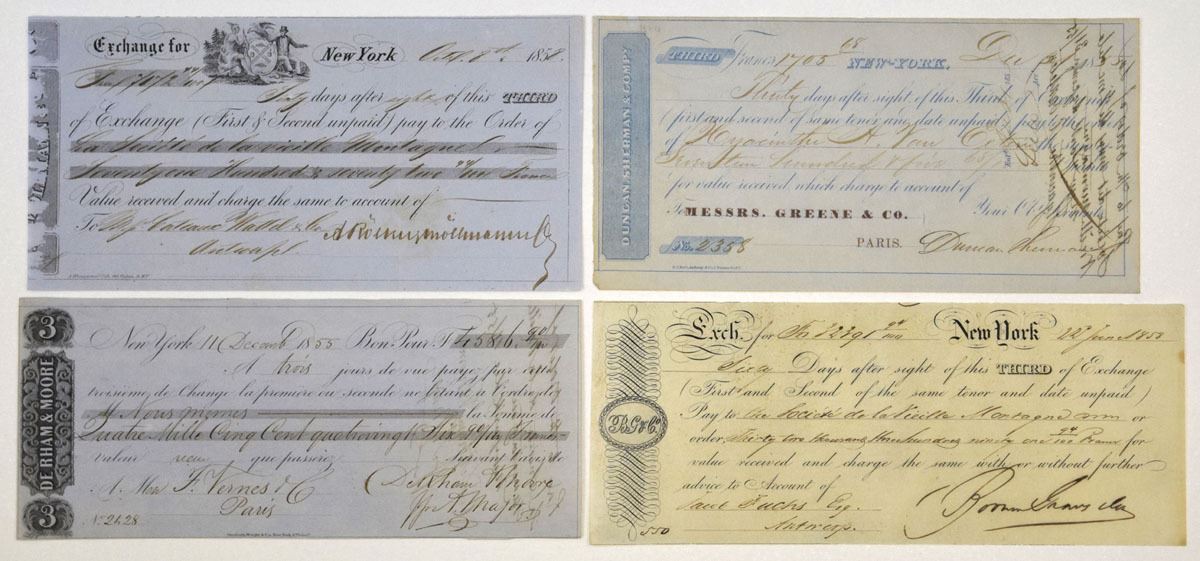 Exchange for New York Oct. 8th. 1858.
Sixty days after sight of this THIRD
of Exchange (First & Second unpaid) pay to the Order of
La Société de la vieille Montagne
Seventy one Hundred & seventy two Francs
Value received and charge the same to account of
To & Co
Antwerp.
DUNCAN SHERMAN & COMPY.
THIRD Francs 1705 68 NEW-YORK, 185
Thirty days after sight of this Third of Exchange
(first and second of same tenor and date unpaid) pay to the order
of Hyacinthe A. Van
Seventeen hundred & five 68/
for value received which charge to account of
To MESSRS. GREENE & CO. Your Obt. Servants
PARIS. Duncan Sherman
No. 2358
3
DE RHAM & MOORE
3
New York 11 Decemb 1855 Bon Pour F 4586.90
A trois jours de vue payez par cette
troisième de Change la première ou seconde ne l'étant à l'ordre de
Nous mêmes la Somme de
Quatre Mille Cinq Cent quatrevingt Six 90/ Francs
valeur reçue que passerez Suivant l'avis de
A Mons F. Vernes & C DeRham & Moore
Paris
No 2128
Exch. for Fr 32391 94 New York 22 June 1853
Sixty Days after sight of this THIRD of Exchange
(First and Second of the same tenor and date unpaid)
Pay to the Société de la Vieille Montagne or
order, Thirty two thousand three hundred ninety one 94 Francs for
value received and charge the same with or without further
advice to Account of
Paul Fuchs Esq.
Antwerp.
550